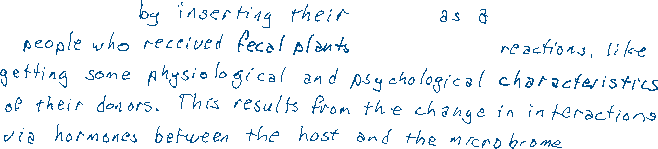 by inserting their as a
people who received fecal plants reactions, like
getting some physiological and psychological characteristics
of their donors. This results from the change in interactions
via hormones between the host and the microbrome